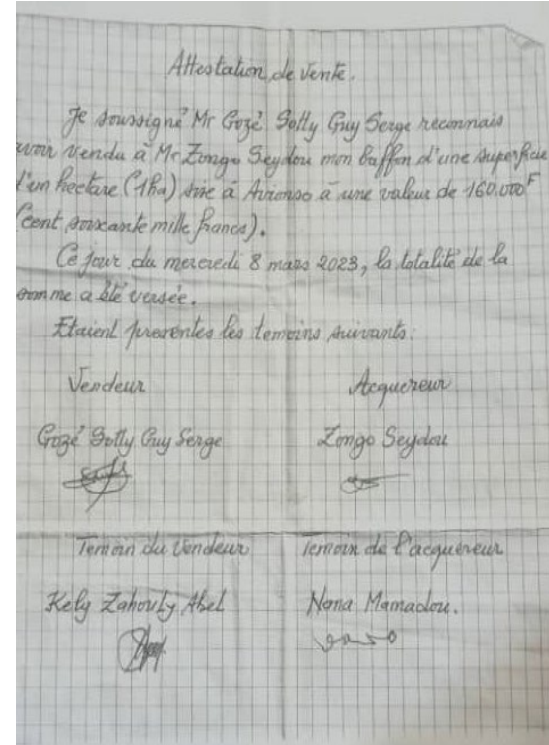 Attestation de Vente.
Je soussigné Mr Gozé Sotty Guy Serge reconnais
avoir vendu à Mr Zongo Seydou mon baffon d'une superficie
d'un hectare (1ha) sise à Avionso à une valeur de 160.000F
(cent soixante mille francs).
Ce jour du mercredi 8 mars 2023, la totalité de la
somme a été versée.
Etaient presentes les temoins suivants:
Vendeur
Acquereur
Gozé Sotty Guy Serge
Zongo Seydou
Temoin du Vendeur
Temoin de l'acquéreur
Kely Zahouly Abel
Nana Mamadou.